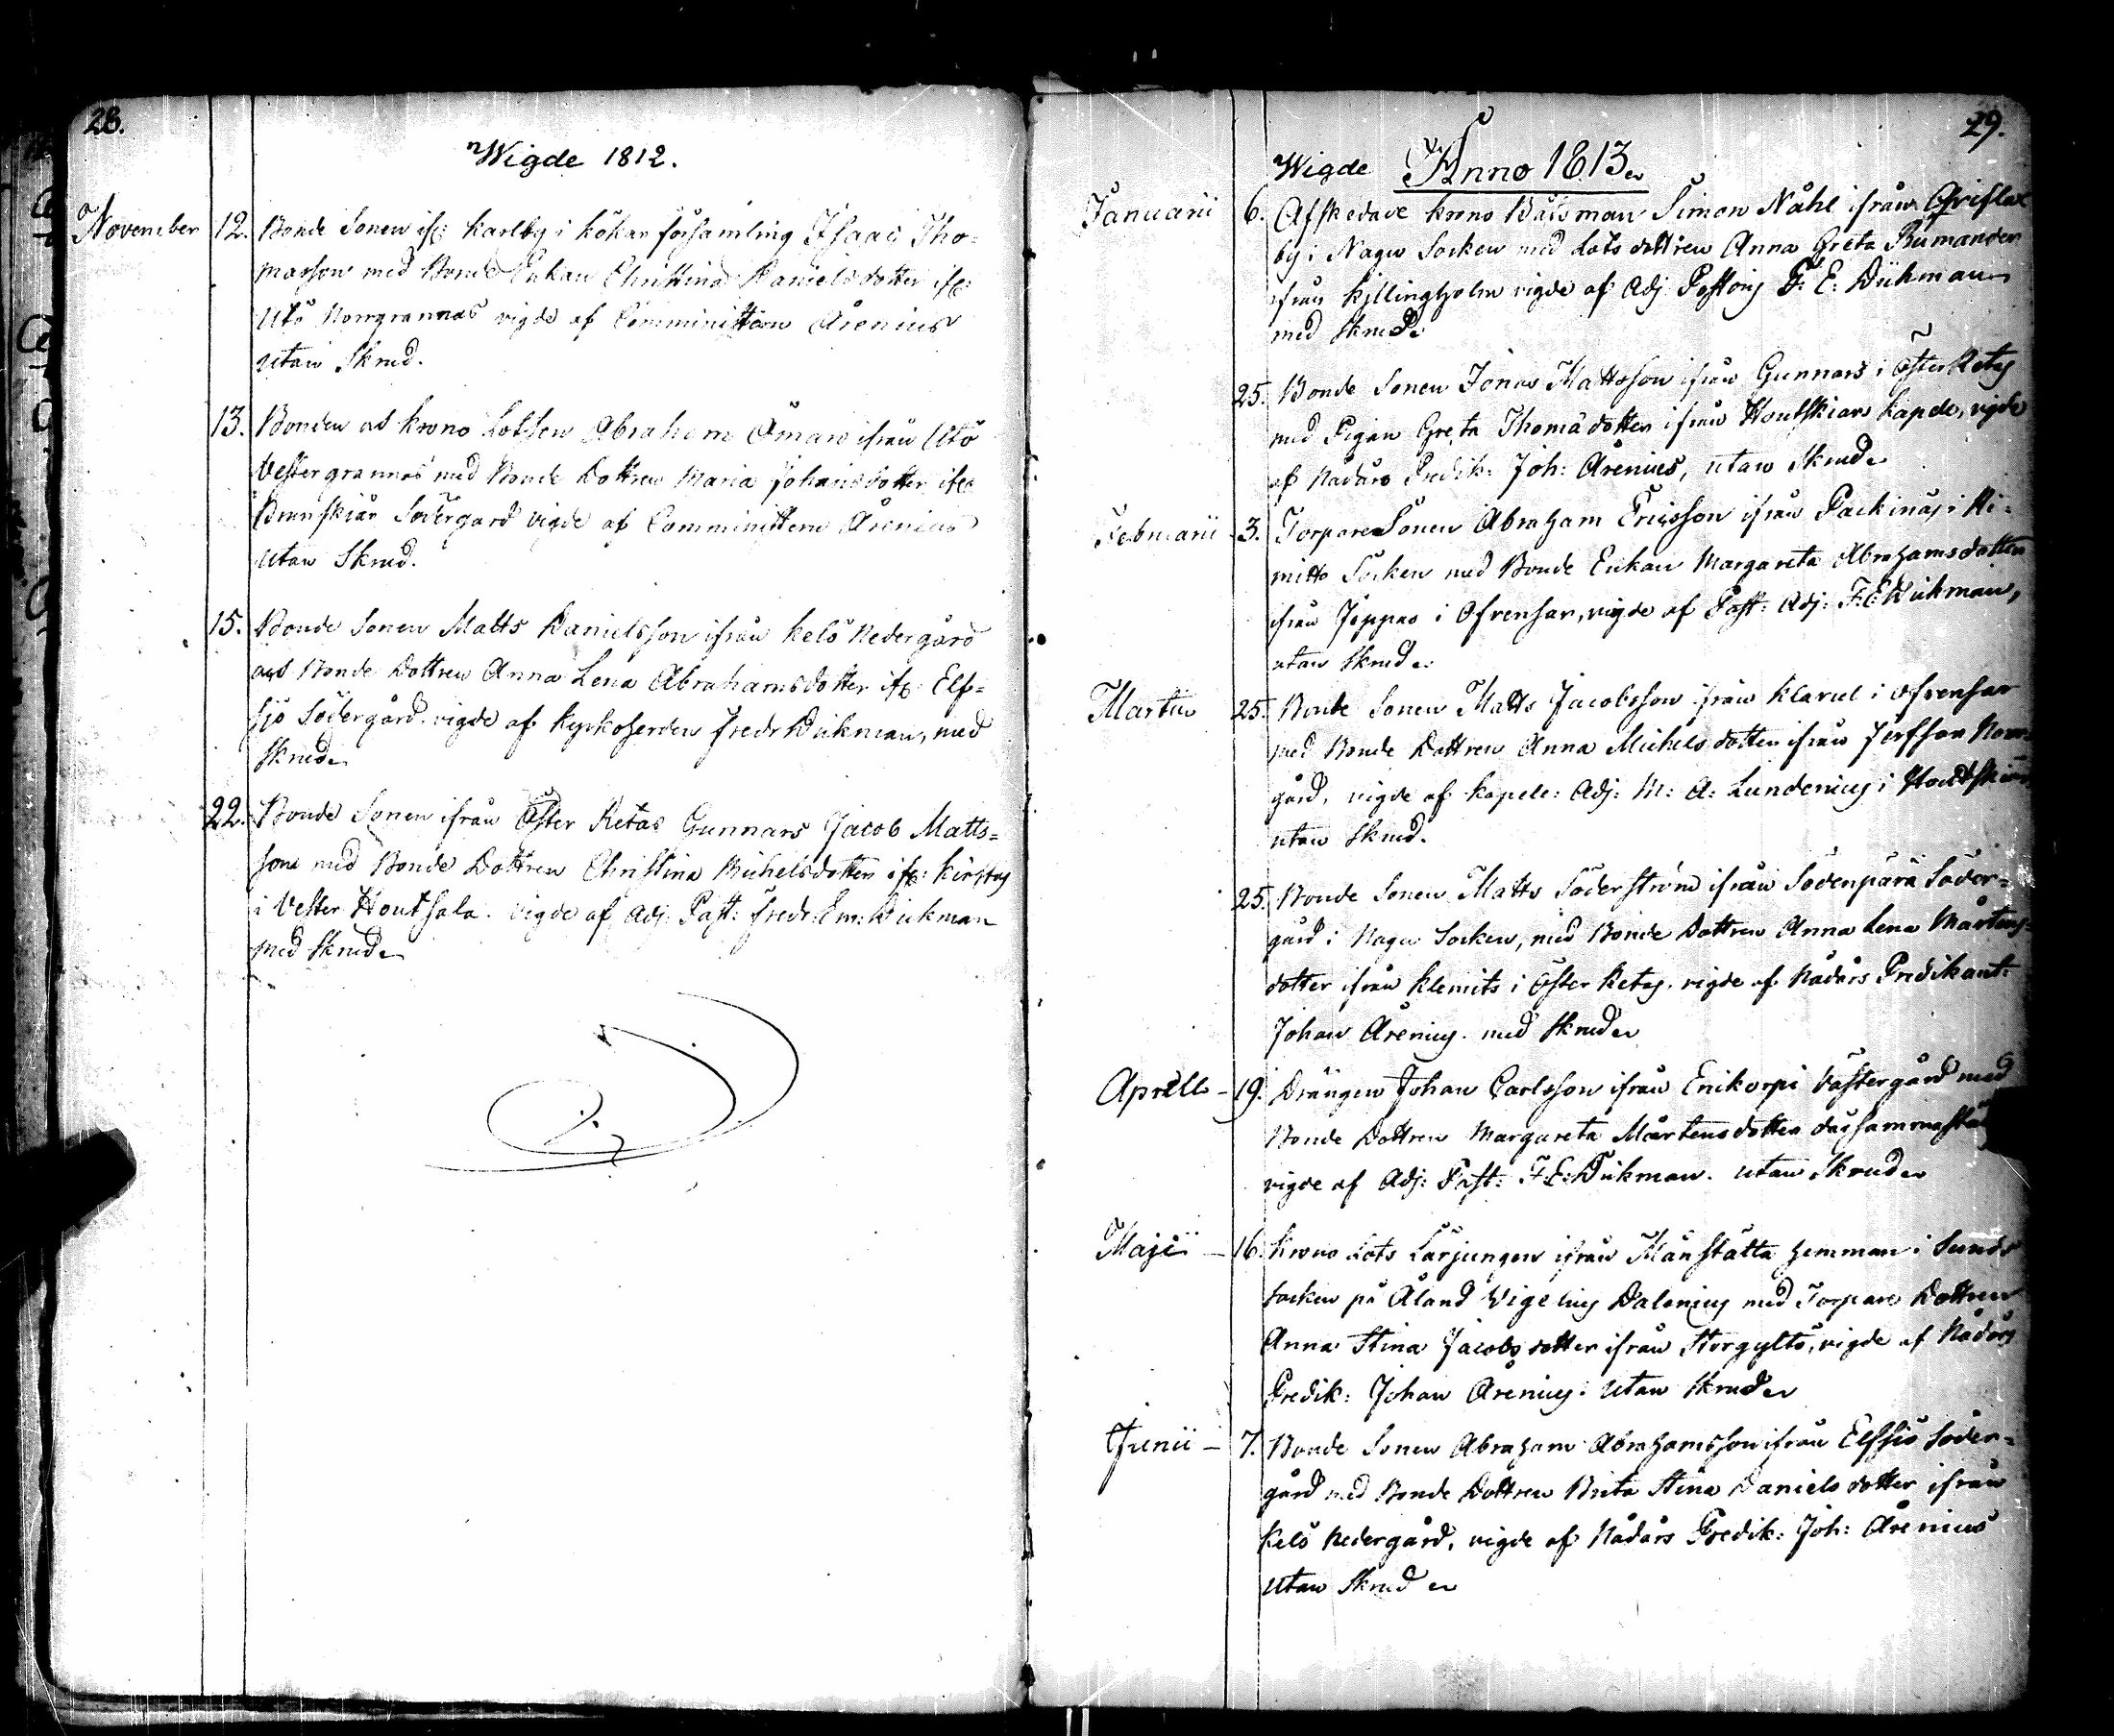 28.
Wigde 1812.
November 12. Bonde Sonen ifr: Karlby i Kökar församling Isaac Tho=
masson med Bonde Enkan Christina Danielsdotter ifr:
Utö Norrgrannas vigde af Comministern Årenius
utan Skrud.
13. Bonden och Krono Lotsen Abraham Öman ifrån Utö
Vestergrannas med Bonde Dottren Maria Johansdotter ifr:
Brunskiär Södergård vigde af Comministern Årenius
utan Skrud.
15. Bonde Sonen Matts Danielsson ifrån Kelö Nedergård
och Bonde Dottren Anna Lena Abrahamsdotter ifr: Elf=
sjö Södergård. vigde af Kyrkoherden Fredr Dükman, med
Skrud.
22. Bonde Sonen ifrån Öster Retas Gunnars Jacob Matts=
son med Bonde Dottren Christina Michelsdotter ifr: Kirstas
i Vester Houtsala. vigde af Adj: Past: Fredr: Em: Dükman
med Skrud.
29.
Wigde Anno 1813.
Januarii 6. Afskedade Krono Båtsman Simon Nåhl ifrån Gräflax
by i Nagu Socken med Lots dottren Anna Greta Rumander
ifrån Killingholm vigde af Adj Pastoris F: E: Dükman
med Skrud.
25. Bonde Sonen Jonas Mattsson ifrån Gunnars i Öster Retas
med Pigan Greta Thomædotter ifrån Houtskiärs Kapele, vigde
af Nådårs Predik: Joh: Årenius, utan Skrud.
Februarii 3. Torpare Sonen Abraham Ericsson ifrån Packinäs i Ki=
mitto Socken med Bonde Enkan Margareta Abrahamsdotter
ifrån Joppas i Ofvensar, vigde af Past: Adj: F: E: Dükman,
utan Skrud.
Martii 25. Bonde Sonen Matts Jacobsson ifrån Klavul i Ofvensar
med Bonde Dottren Anna Michelsdotter ifrån Jerfsor Norr=
gård, vigde af Kapele: Adj: M: A: Lundenius i Houtskiär
utan Skrud.
25. Bonde Sonen Matts Söderström ifrån Sövenpärä Söder=
gård i Nagu Socken, med Bonde Dottren Anna Lena Mårtens=
dotter ifrån Klemits i Öster Retas. vigde af Nådårs Predikant:
Johan Årenius. med Skrud
Aprill 19. Drängen Johan Carlsson ifrån Erikorpi Västergård med
Bonde Dottren Margareta Mårtensdotter dersammastä
vigde af Adj: Past: F: E: Dükman. utan Skrud
Maji 16. Krono Lots Lärjungen ifrån Månstätta hemman i Sunds
socken på Åland Vigelius Dalenius med Torpare Dottren
Anna Stina Jacobsdotter ifrån Storgyltö, vigde af Nådårs
Predik: Johan Årenius. utan Skrud
Junii 7. Bonde Sonen Abraham Abrahamsson ifrån Elfsjö Söder=
gård med Bonde Dottren Brita Stina Danielsdotter ifrån
Kelö Nedergård, vigde af Nådårs Predik: Joh: Årenius
utan Skrud